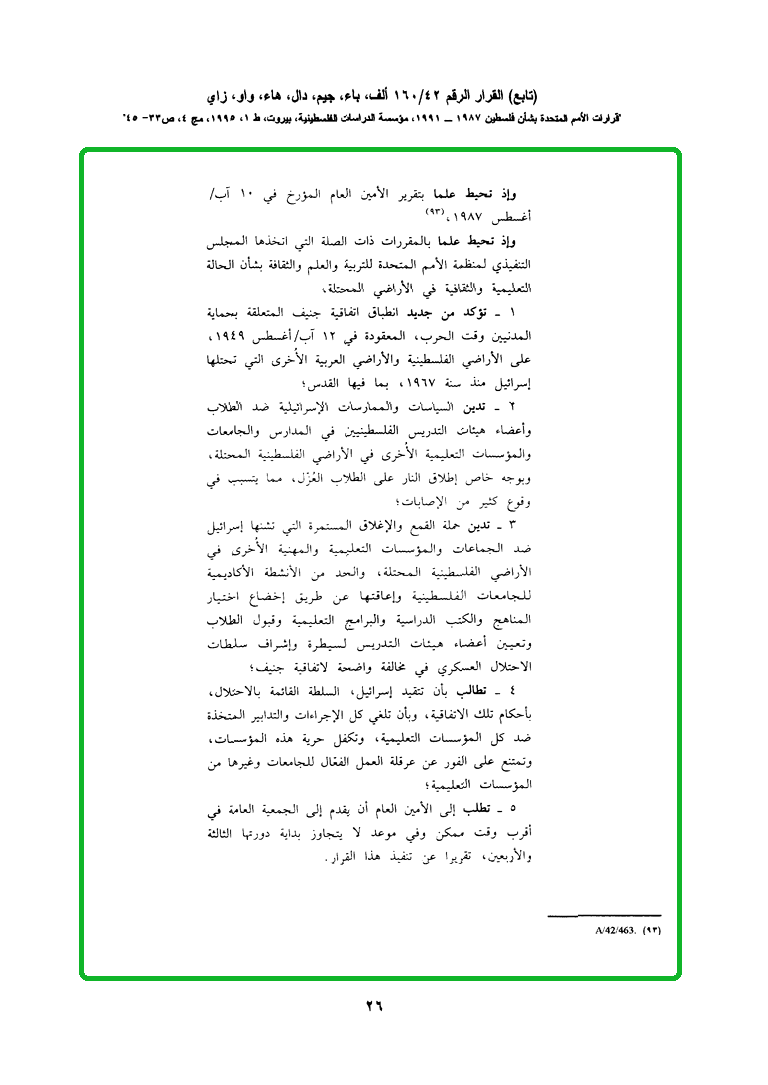 (تابع) القرار الرقم ١٦٠/٤٢ ألف، باء، جيم، دال، هاء، واو، زاي
"قرارات الأمم المتحدة بشأن فلسطين ١٩٨٧ ــ ١٩٩١، مؤسسة الدراسات الفلسطينية، بيروت، ط ١، ١٩٩٥، مج ٤، ص٣٣- ٤٥"
وإذ تحيط علما بتقرير الأمين العام المؤرخ في ١٠ آب/
أغسطس ١٩٨٧،(٩٣)
وإذ تحيط علما بالمقررات ذات الصلة التي اتخذها المجلس
التنفيذي لمنظمة الأمم المتحدة للتربية والعلم والثقافة بشأن الحالة
التعليمية والثقافية في الأراضي المحتلة،
١ ـ تؤكد من جديد انطباق اتفاقية جنيف المتعلقة بحماية
المدنيين وقت الحرب، المعقودة في ١٢ آب/أغسطس ١٩٤٩،
على الأراضي الفلسطينية والأراضي العربية الأُخرى التي تحتلها
إسرائيل منذ سنة ١٩٦٧، بما فيها القدس؛
٢ ـ تدين السياسات والممارسات الإسرائيلية ضد الطلاب
وأعضاء هيئات التدريس الفلسطينيين في المدارس والجامعات
والمؤسسات التعليمية الأُخرى في الأراضي الفلسطينية المحتلة،
وبوجه خاص إطلاق النار على الطلاب العُزّل، مما يتسبب في
وقوع كثير من الإصابات؛
٣ ـ تدين حملة القمع والإغلاق المستمرة التي تشنها إسرائيل
ضد الجماعات والمؤسسات التعليمية والمهنية الأُخرى في
الأراضي الفلسطينية المحتلة، والحد من الأنشطة الأكاديمية
للجامعات الفلسطينية وإعاقتها عن طريق إخضاع اختيار
المناهج والكتب الدراسية والبرامج التعليمية وقبول الطلاب
وتعيين أعضاء هيئات التدريس لسيطرة وإشراف سلطات
الاحتلال العسكري في مخالفة واضحة لاتفاقية جنيف؛
٤ ـ تطالب بأن تتقيد إسرائيل، السلطة القائمة بالاحتلال،
بأحكام تلك الاتفاقية، وبأن تلغي كل الإجراءات والتدابير المتخذة
ضد كل المؤسسات التعليمية، وتكفل حرية هذه المؤسسات،
وتمتنع على الفور عن عرقلة العمل الفعّال للجامعات وغيرها من
المؤسسات التعليمية؛
٥ ـ تطلب إلى الأمين العام أن يقدم إلى الجمعية العامة في
أقرب وقت ممكن وفي موعد لا يتجاوز بداية دورتها الثالثة
والأربعين، تقريرا عن تنفيذ هذا القرار.
(٩٣) A/42/463.
٢٦